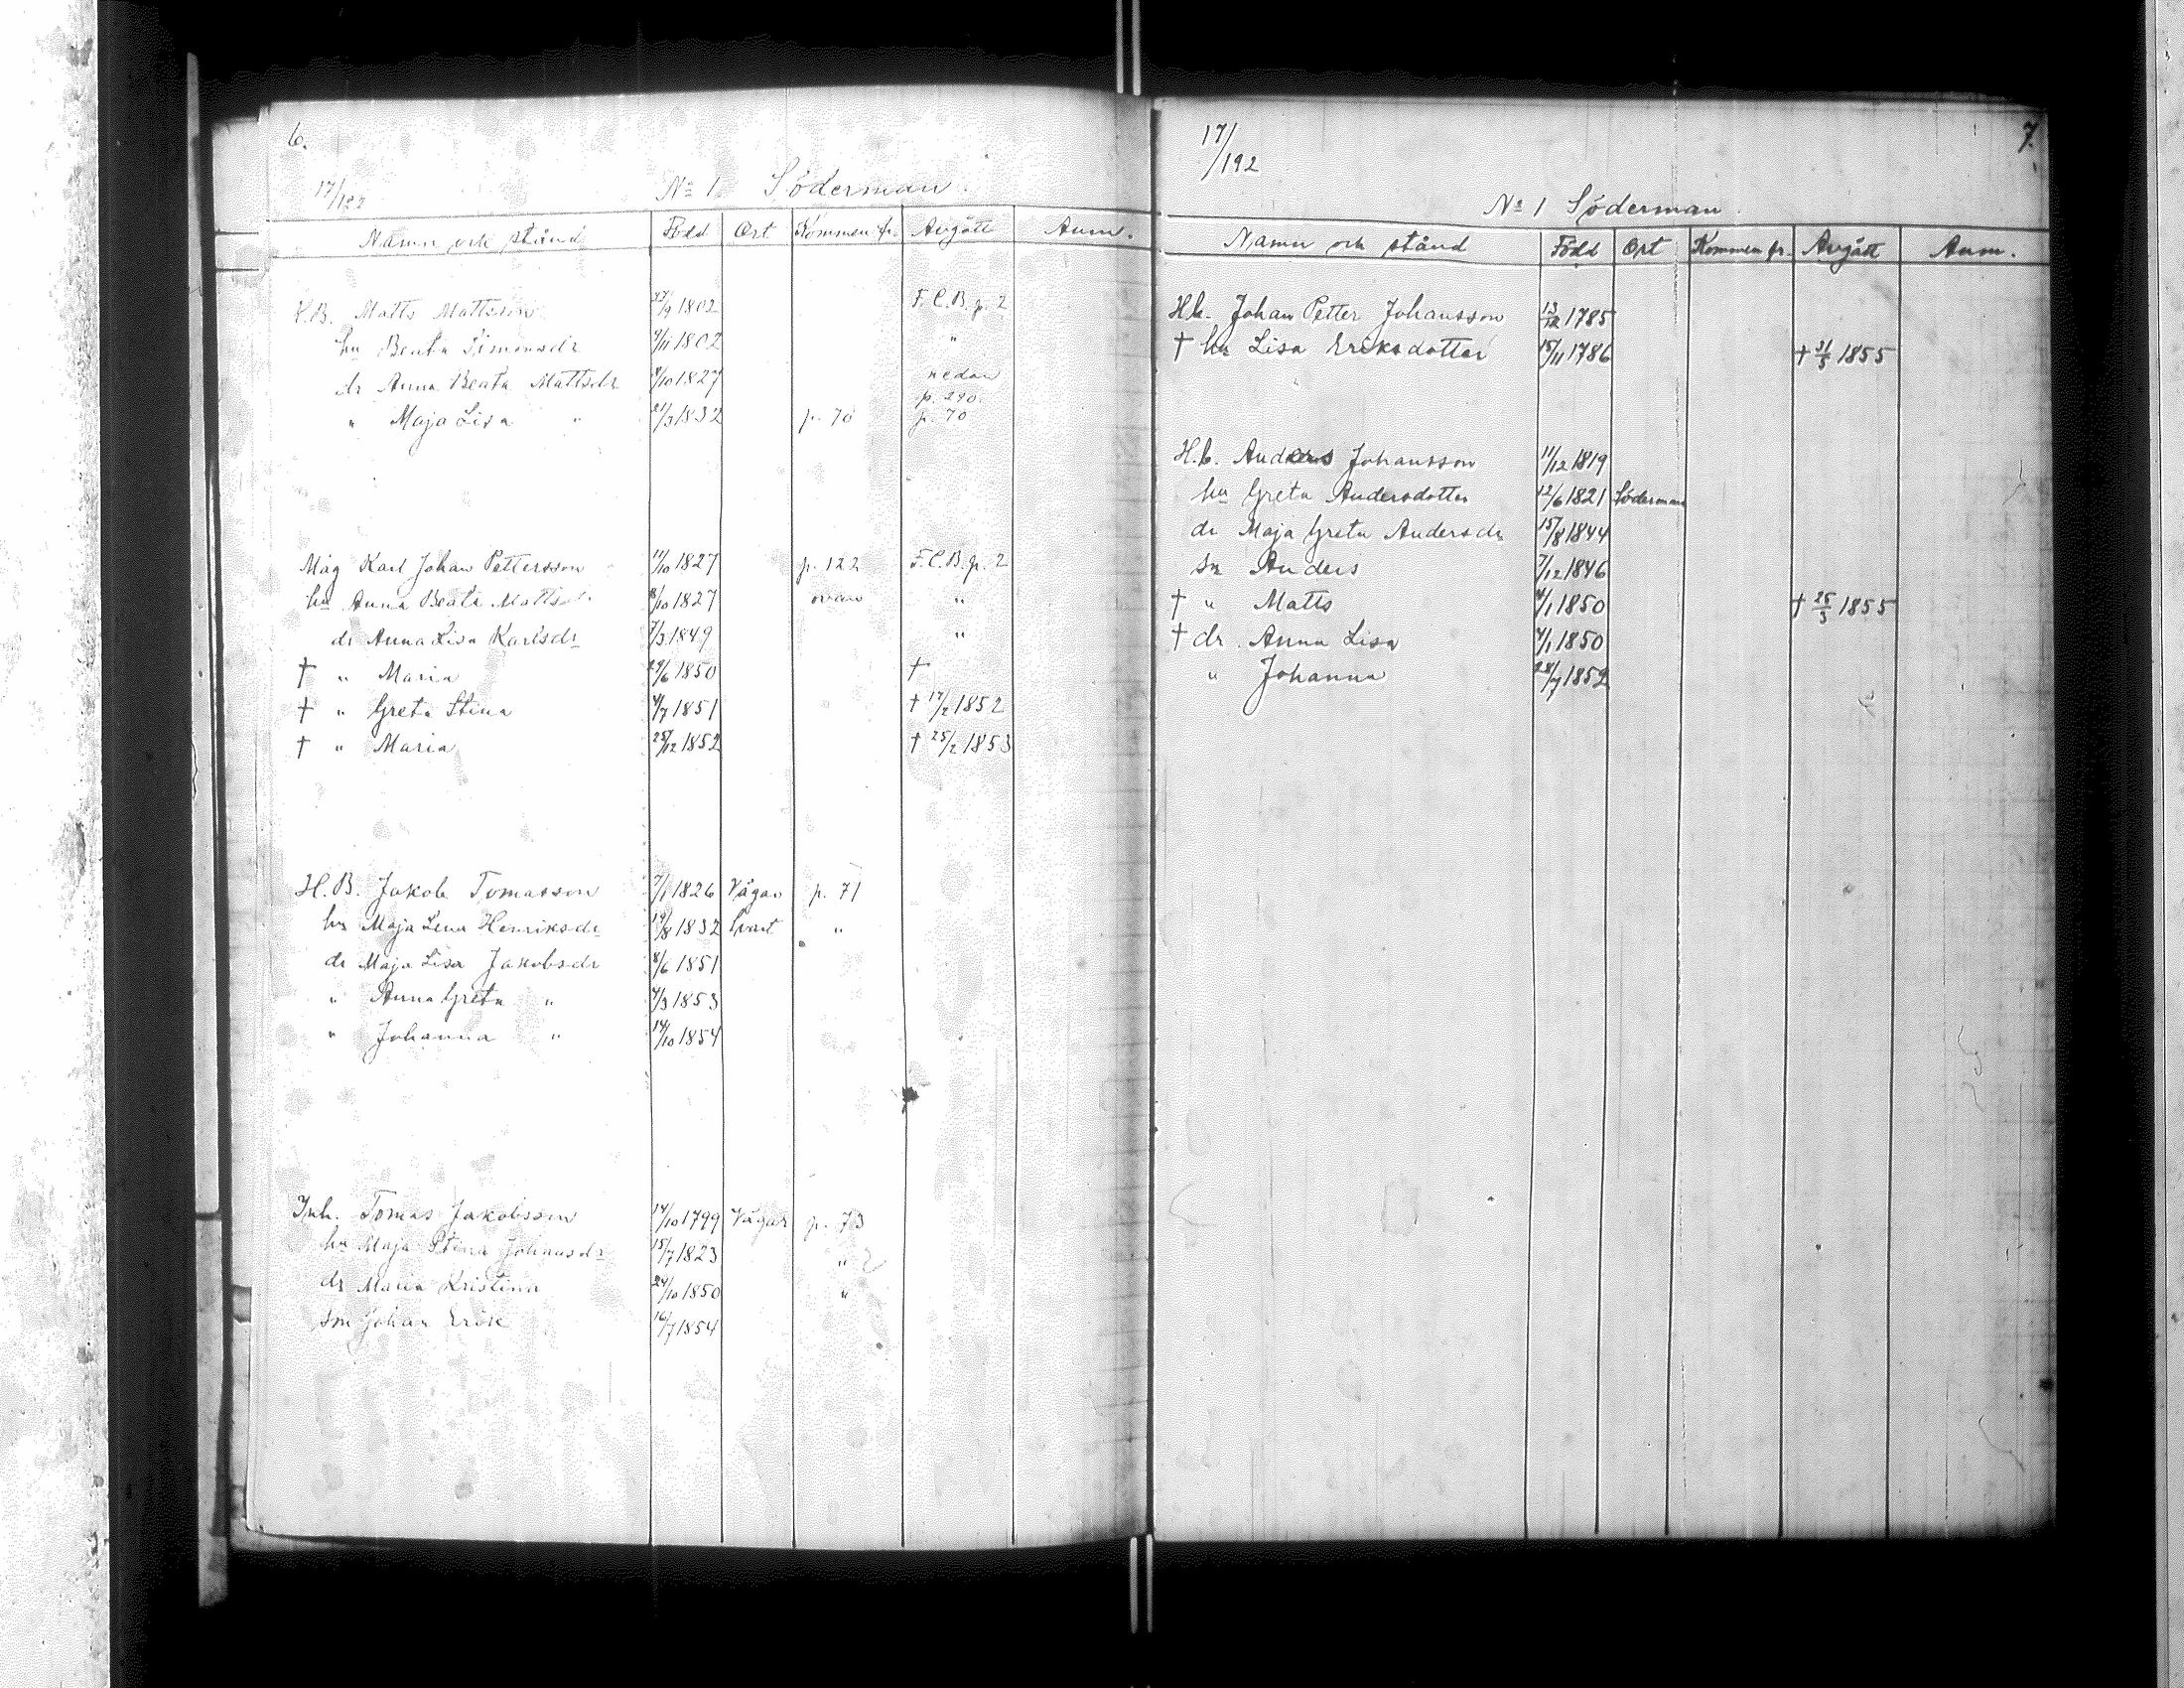 6.
17/192
No 1 Söderman.
Namn och stånd Född Ort Kommen fr. Avgått Anm.
K.B. Matts Mattsson 27/9 1802 F.C.B. p. 2
hu Beata Simonsdr 9/11 1802 "
dr Anna Beata Mattsdr 8/10 1827 nedan
p. 290.
" Maja Lisa " 21/3 1832 p. 70 p. 70
Måg Karl Johan Pettersson 11/10 1827 p. 122 F.C.B. p. 2
hu Anna Beata Mattsdr 8/10 1827 ovan "
dr Anna Lisa Karlsdr 7/3 1849 "
† " Maria 29/6 1850 †
† " Greta Stina 4/7 1851 † 17/2 1852
† " Maria 25/12 1852 † 25/2 1853
H.B. Jakob Tomasson 7/1 1826 Vågar p. 71
hu Maja Lena Henriksdr 19/8 1832 Svart "
dr Maja Lisa Jakobsdr 8/6 1851
" Anna Greta " 4/3 1853
" Johanna " 14/10 1854
Inh. Tomas Jakobsson 14/10 1799 Vågar p. 73
hu Maja Stina Johansdr 15/7 1823 "
dr Maria Kristina 24/10 1850 "
sn Johan Erik 16/7 1854
17/192
7.
No 1 Söderman.
Namn och stånd Född Ort Kommen fr. Avgått Anm.
Hb. Johan Petter Johansson 13/12 1785
† hu Lisa Eriksdotter 15/11 1786 † 31/5 1855
H.b. Anders Johansson 11/12 1819
hu Greta Andersdotter 12/6 1821 Söderman
dr Maja Greta Andersdr 15/8 1844
sn Anders 7/12 1846
† " Matts 4/1 1850 † 25/3 1855
† dr. Anna Lisa 4/1 1850
" Johanna 28/7 1852